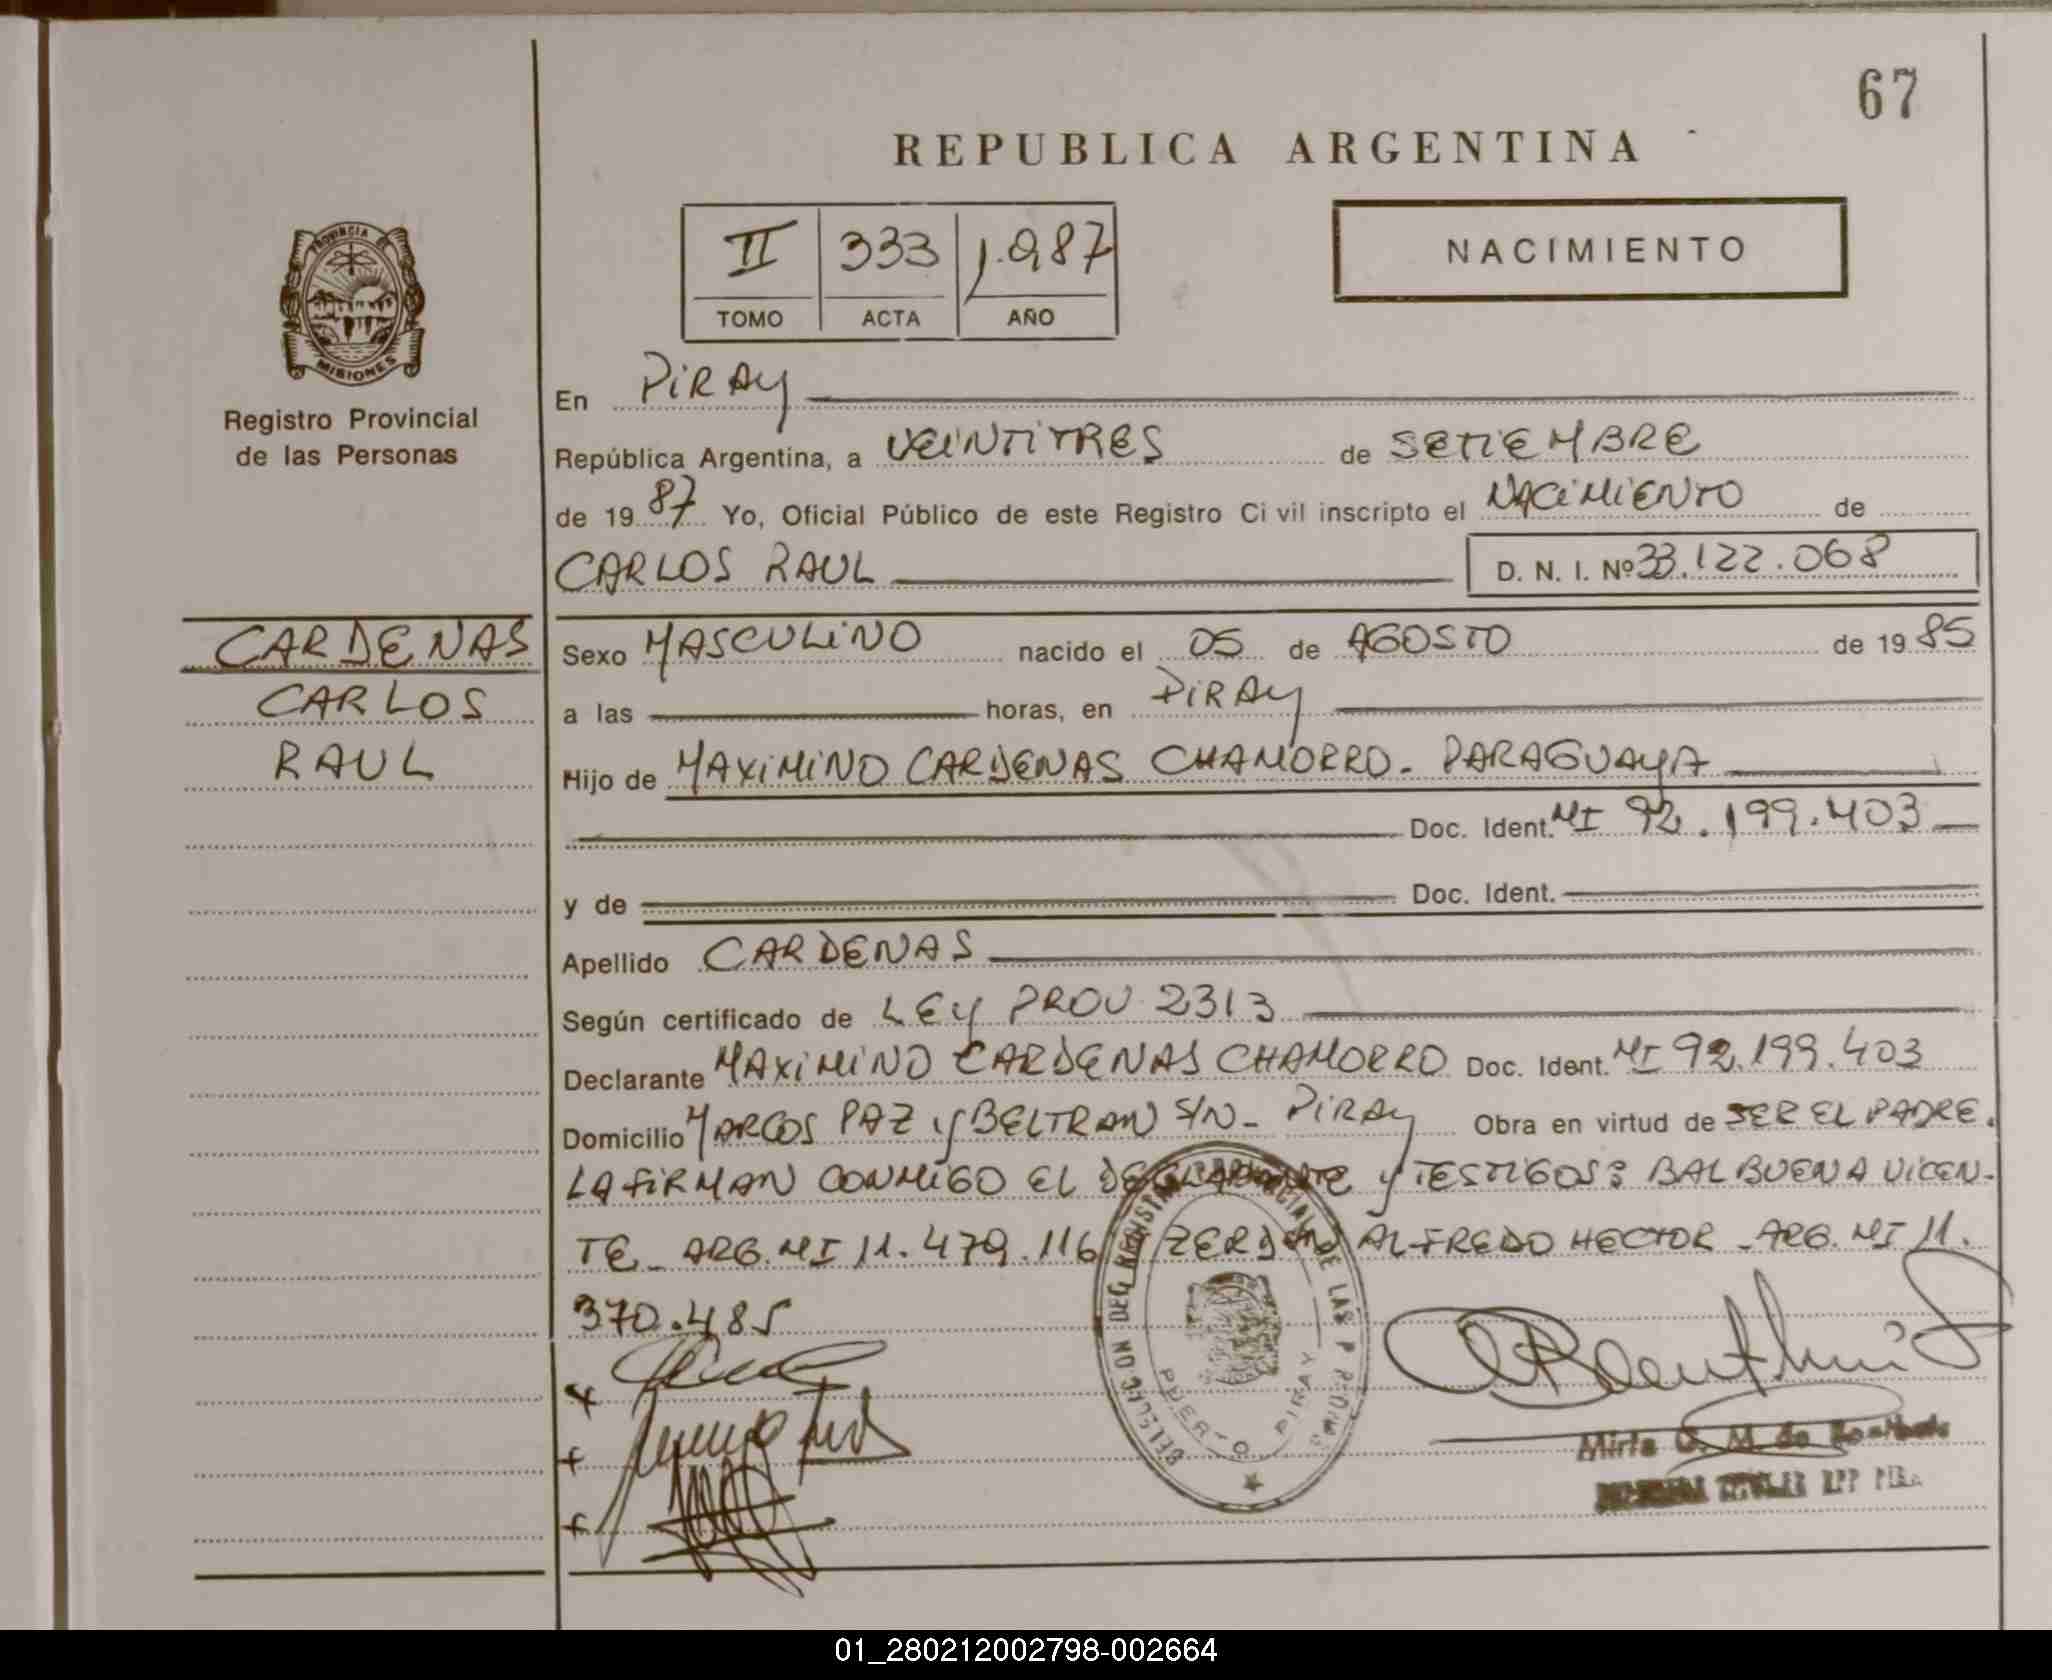 67
REPUBLICA ARGENTINA
PROVINCIA DE
MISIONES
Registro Provincial
de las Personas
II 333 1.987
TOMO ACTA AÑO
NACIMIENTO
En PIRAY
República Argentina, a VEINTITRES de SETIEMBRE
de 19 87 Yo, Oficial Público de este Registro Ci vil inscripto el NACIMIENTO de
CARLOS RAUL D. N. I. Nº 33.122.068
CARDENAS
CARLOS
RAUL
Sexo MASCULINO nacido el 05 de AGOSTO de 19 85
a las horas, en PIRAY
Hijo de MAXIMINO CARDENAS CHAMORRO - PARAGUAYA
Doc. Ident. MI 92.199.403
y de Doc. Ident.
Apellido CARDENAS
Según certificado de LEY PROV 2313
Declarante MAXIMINO CARDENAS CHAMORRO Doc. Ident. MI 92.199.403
Domicilio MARCOS PAZ y BELTRAN S/N - PIRAY Obra en virtud de SER EL PADRE.
LA FIRMAN CONMIGO EL DECLARANTE y TESTIGOS: BALBUENA VICEN-
TE - ARG. MI 11.479.116 ZERDAN ALFREDO HECTOR - ARG. MI 11.
370.485
DELEGACION DEL REGISTRO PROVINCIAL DE LAS P
PUERTO PIRAY
Mirta G. M. de
01_280212002798-002664